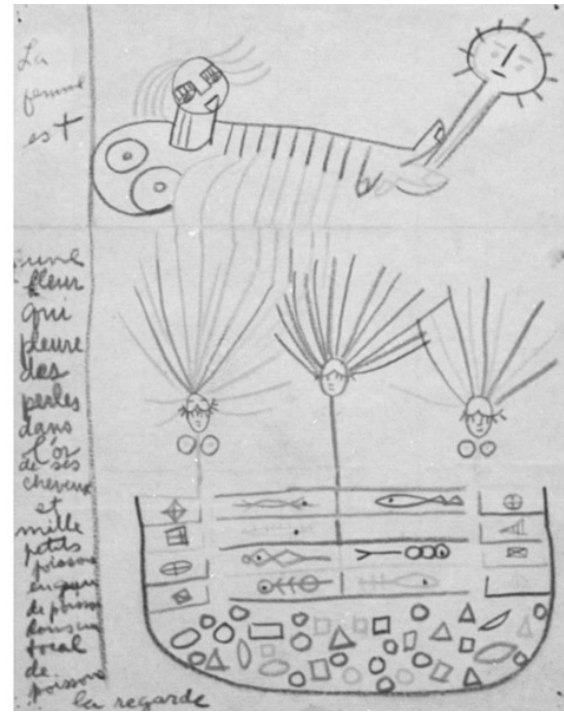 La
femme
est
une
fleur
qui
pleure
des
perles
dans
l'or
de ses
cheveux
et
mille
petits
poissons
de poisson
dans un
bocal
de
poissons
la regarde